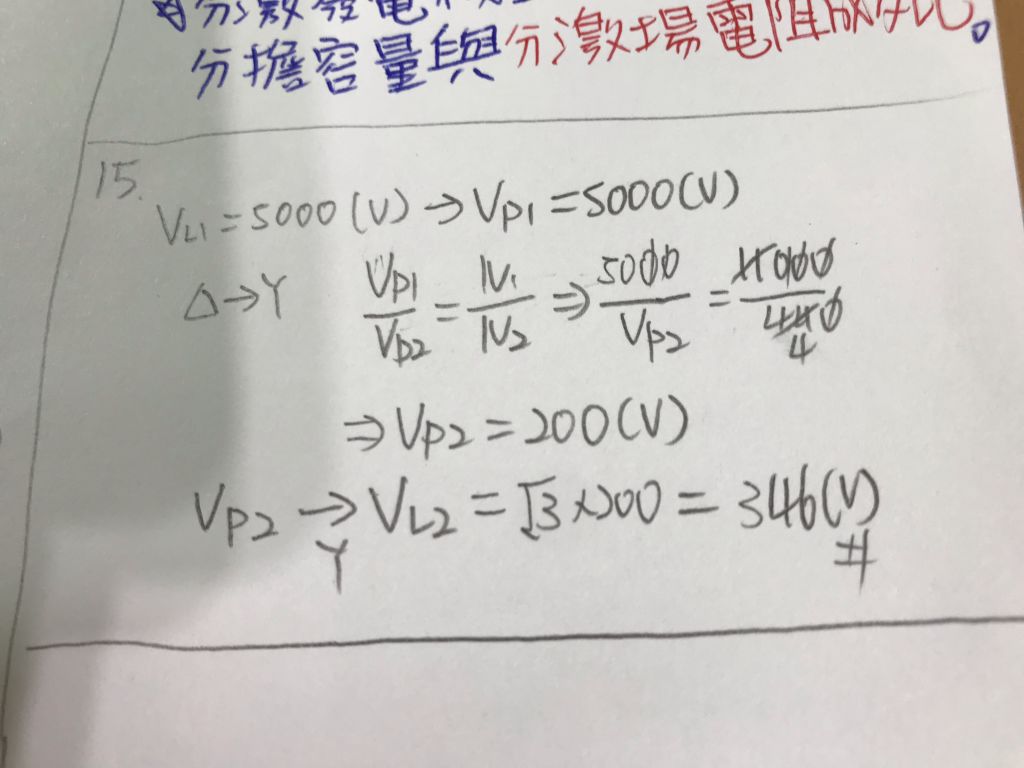 分激發電
分擔容量與分激場電阻成反比。
15.
VL1 = 5000 (V) → VP1 = 5000 (V)
Δ → Y VP1/VP2 = N1/N2 ⇒ 5000/VP2 = 11000/440 4
⇒ VP2 = 200 (V)
VP2 →Y VL2 = √3 × 200 = 346 (V) #